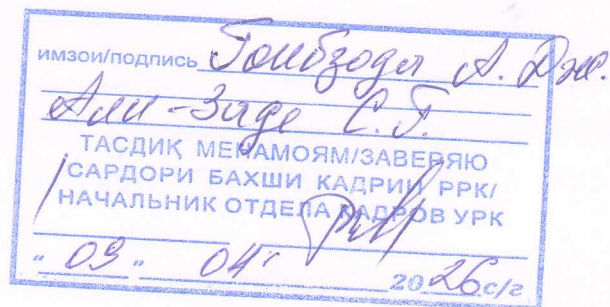 имзои/подпись Гоибзода А. Дж.
Али-Заде С. Г.
ТАСДИҚ МЕНАМОЯМ/ЗАВЕРЯЮ
САРДОРИ БАХШИ КАДРИИ РРК/
НАЧАЛЬНИК ОТДЕЛА КАДРОВ УРК
" 09 " 04 2026 с/г